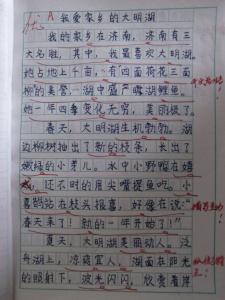 优 A 我爱家乡的大明湖
我的家乡在济南,济南有三
大名胜,其中,我最喜欢大明湖。
她占地上千亩,有四面荷花三面
柳的美誉,湖中盛产露湖鲤鱼。
她一年四季变化无穷,美丽极了。
春天,大明湖生机勃勃。湖
边柳树抽出了新的枝条,长出了
嫩绿的小芽儿。水中小野鸭在嬉
戏,还不时的用尖嘴捉鱼吃。小
喜鹊站在枝头报喜,好像在说:“
春天来了!新的一年开始了!”
夏天,大明湖美丽动人。泛
舟湖上,凉爽宜人。湖面在阳光
的照射下,波光闪闪。欣赏着岸